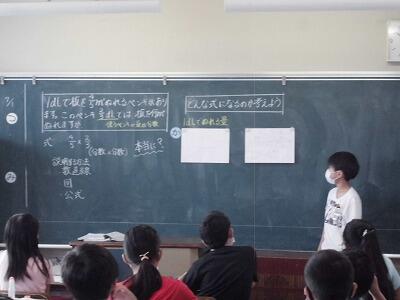 1dLで板を4/5㎡ぬれるペンキがあり
ます。このペンキ2/3dLでは、板を何㎡
ぬれますか。
使うペンキの量が分数
式 4/5×2/3
(分数×分数)
本当に?
説明する方法
数直線
図
公式
どんな式になるのか考えよう
1dLでぬれる量